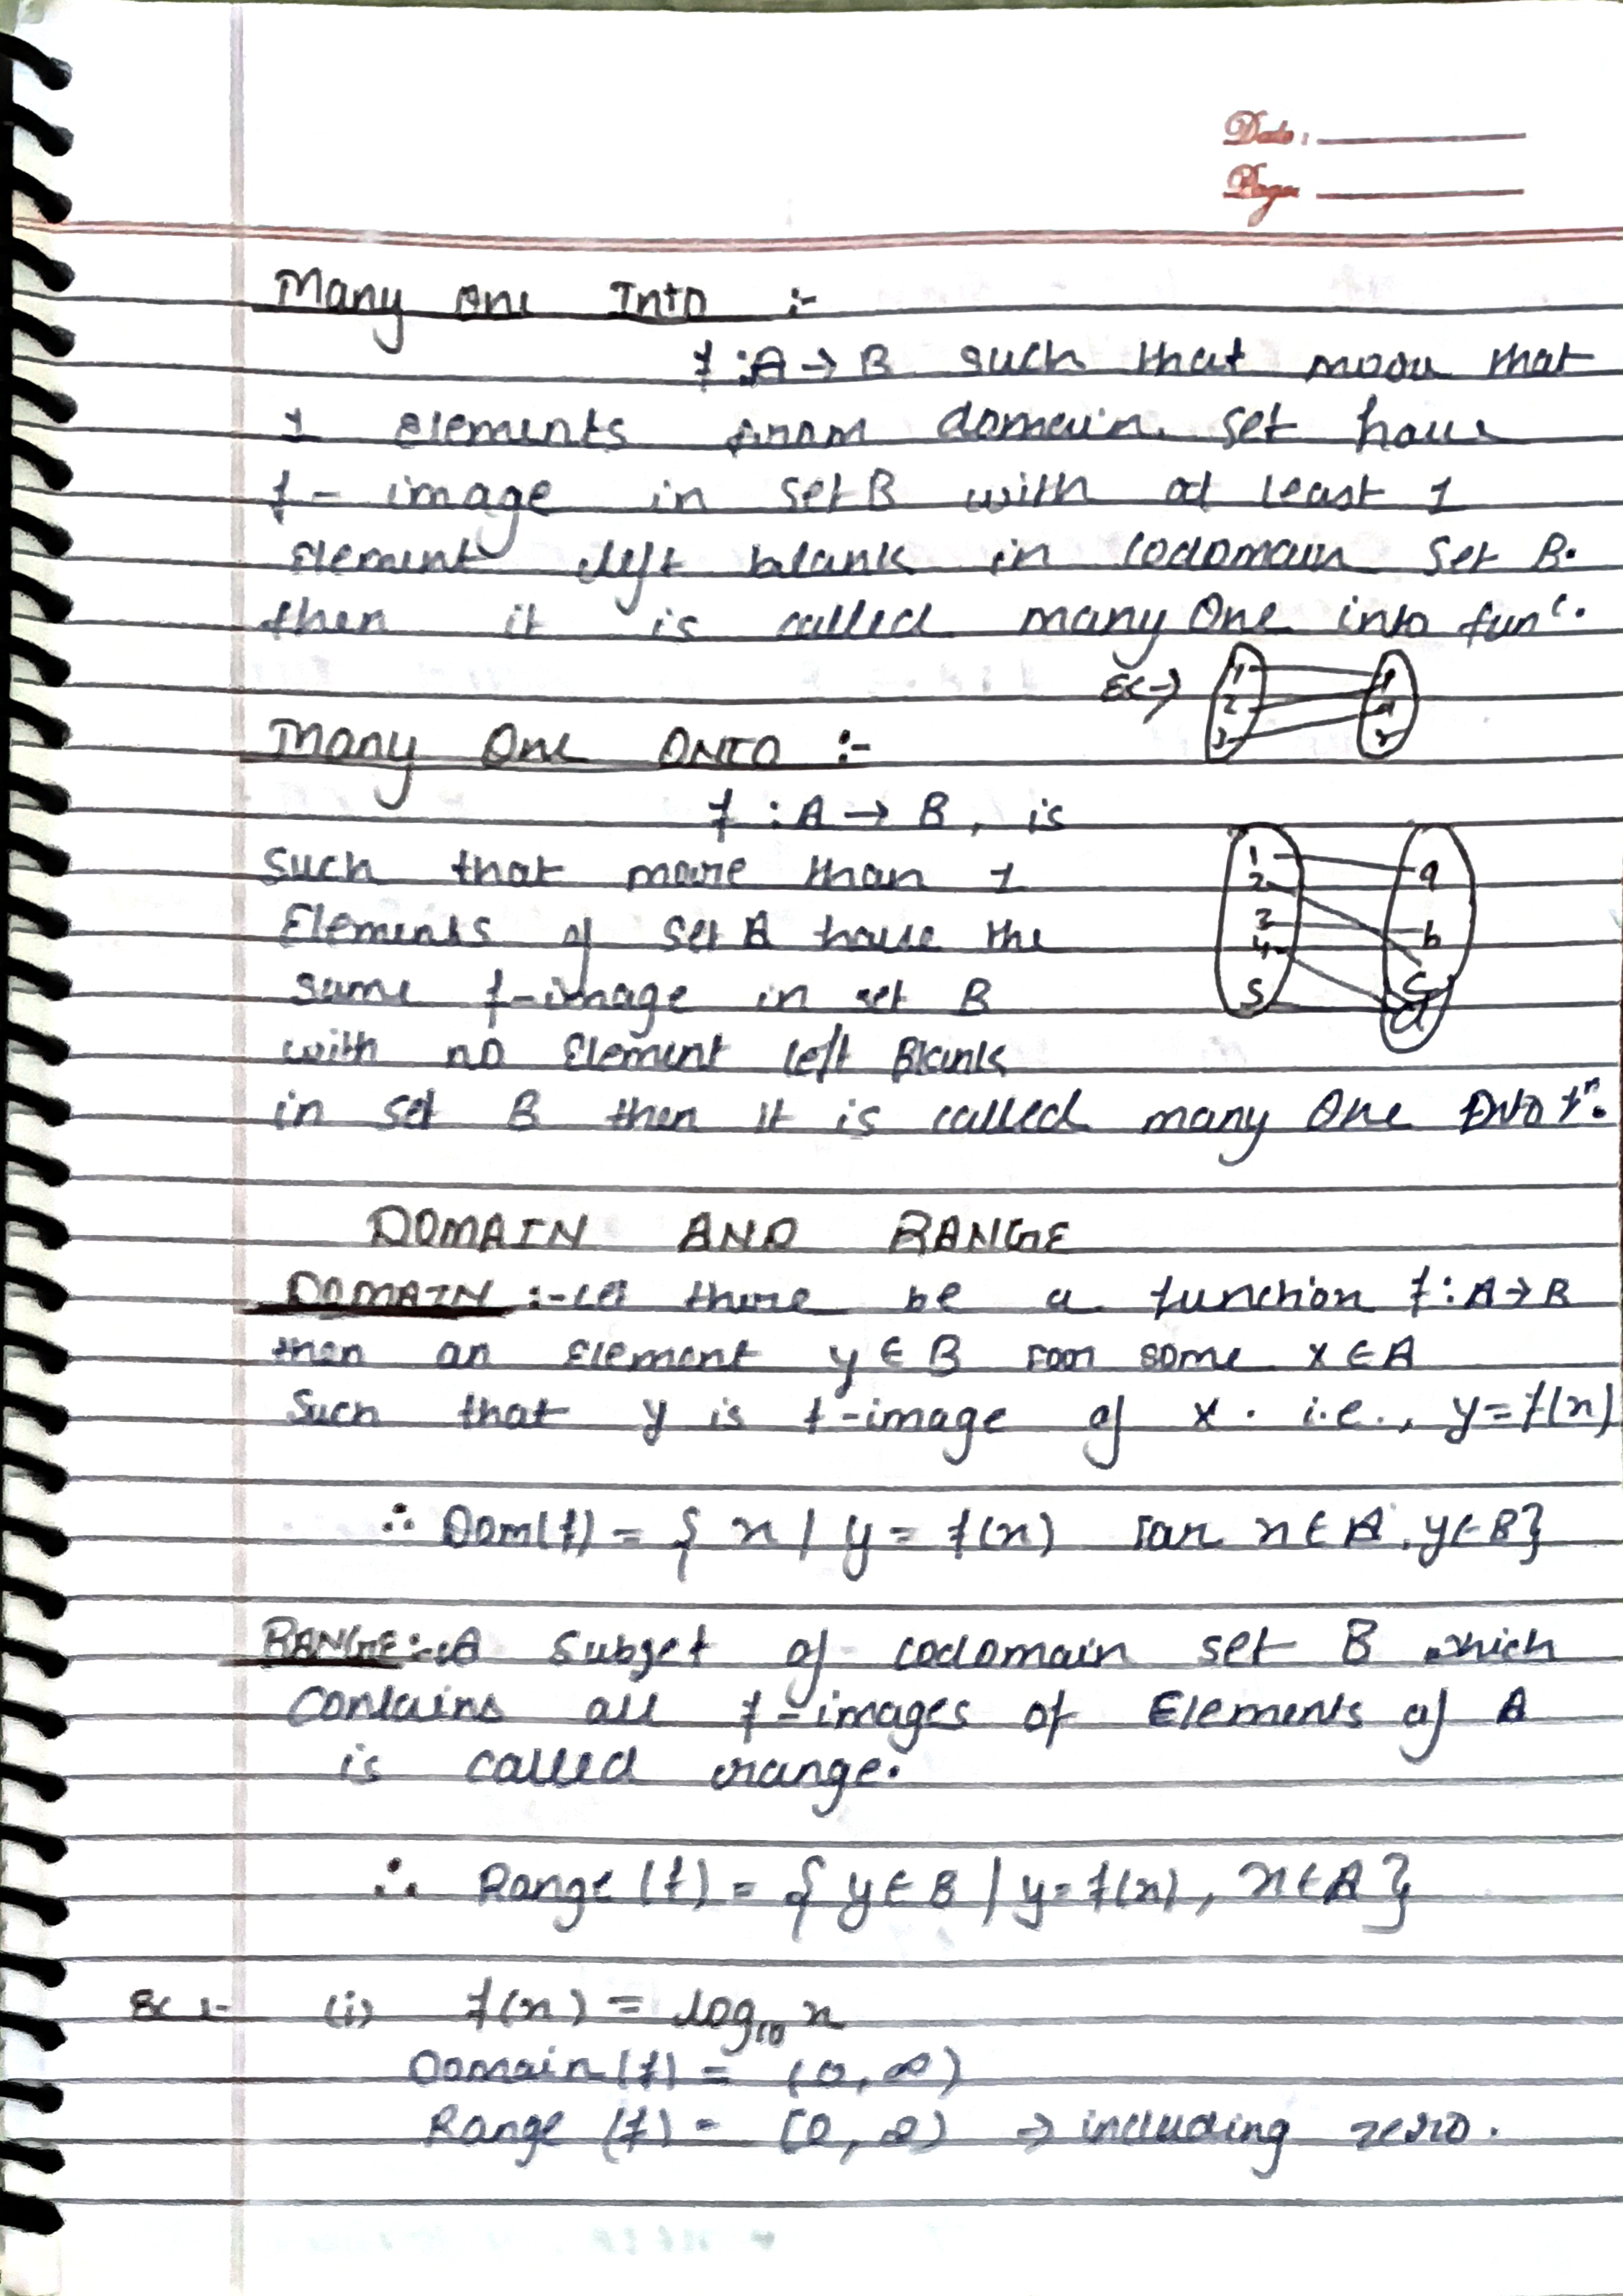 Date:
Page
Many One Into :-
f : A → B such that more that
1 elements from domain set have
f - image in set B with at least 1
element left blank in codomain set B.
then it is called many one into funⁿ.
Ex →
1 2 3
p q r
Many One ONTO :-
f : A → B, is
such that more than 1
Elements of set A have the
same f-image in set B
with no Element left Blank
in set B then it is called many One Onto fⁿ.
1 2 3 4 5
a b c d
DOMAIN AND RANGE
DOMAIN :- let there be a function f : A → B
then an element y ∈ B for some x ∈ A
Such that y is f-image of x. i.e., y = f(x)
∴ Dom(f) = { x / y = f(x) for x ∈ A, y ∈ B}
RANGE :- A subset of codomain set B which
contains all f-images of Elements of A
is called range.
∴ Range (f) = { y ∈ B / y = f(x), x ∈ A }
Ex :- (i) f(x) = log₁₀ x
Domain (f) = (0, ∞)
Range (f) = [0, ∞) → including zero.